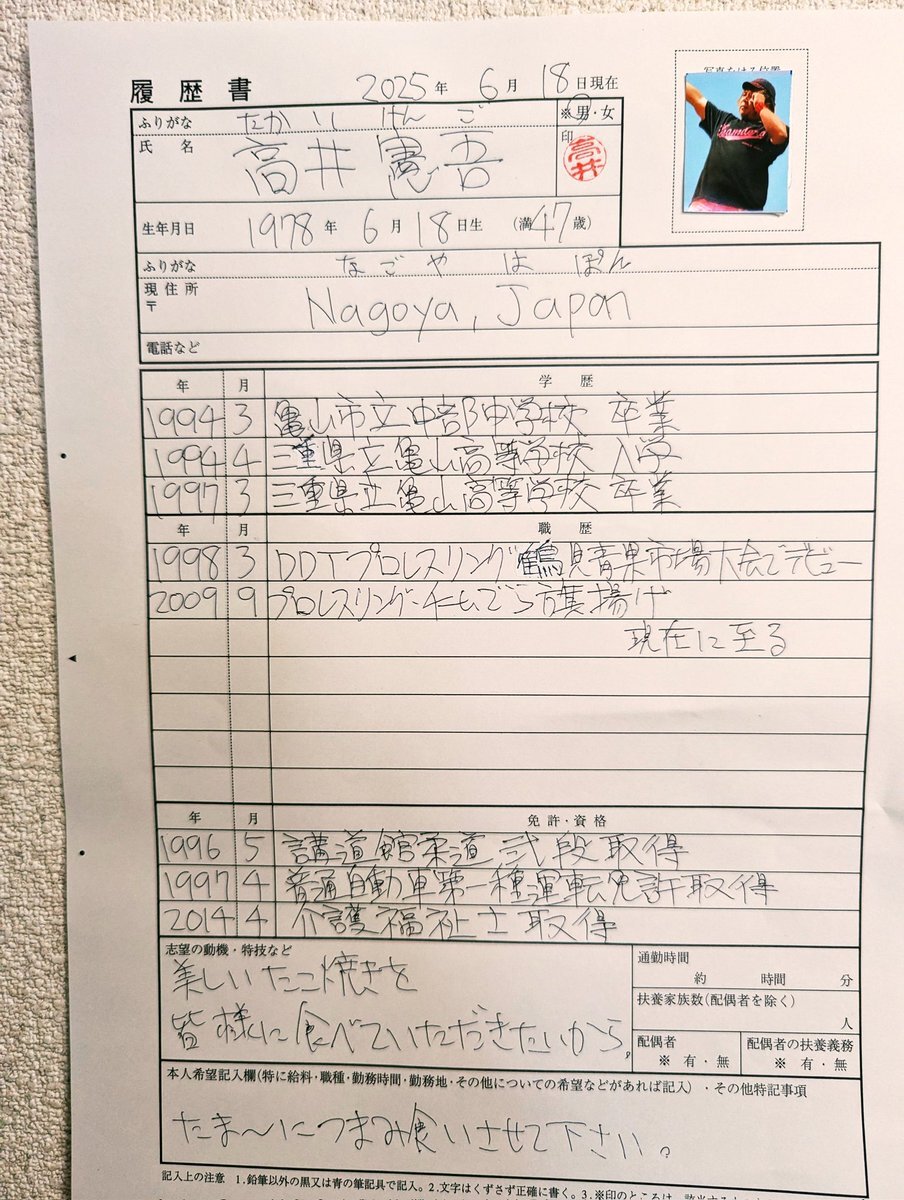 写真をはる位置
履歴書 2025年 6月 18日現在
ふりがな たかい けんご ※男・女
氏名 高井憲吾 印 高井
生年月日 1978年 6月 18日生 (満47歳)
ふりがな なごや はぽん
現住所 Nagoya, Japan
〒
電話など
年 月 学歴
1994 3 亀山市立中部中学校 卒業
1994 4 三重県立亀山高等学校 入学
1997 3 三重県立亀山高等学校 卒業
年 月 職歴
1998 3 DDTプロレスリング鶴見青果市場大会でデビュー
2009 9 プロレスリング・チームでら旗揚げ
現在に至る
年 月 免許・資格
1996 5 講道館柔道 弐段取得
1997 4 普通自動車第一種運転免許取得
2014 4 介護福祉士取得
志望の動機・特技など
美しいたこ焼きを
皆様に食べていただきたいから。
通勤時間
約 時間 分
扶養家族数(配偶者を除く)
人
配偶者
※ 有・無
配偶者の扶養義務
※ 有・無
本人希望記入欄(特に給料・職種・勤務時間・勤務地・その他についての希望などがあれば記入)・その他特記事項
たま〜につまみ食いさせて下さい。
記入上の注意 1.鉛筆以外の黒又は青の筆記具で記入。2.文字はくずさず正確に書く。3.※印のところは、